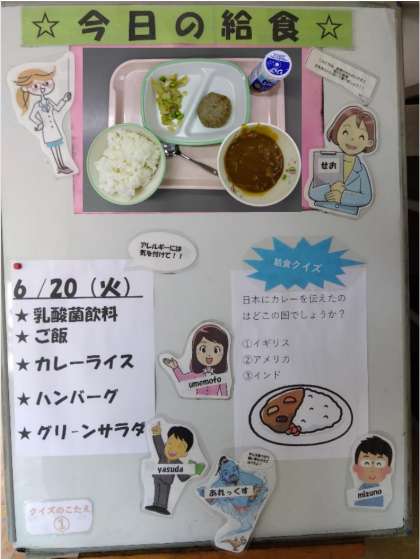 ☆今日の給食☆
せお
アレルギーには
気を付けて！！
6/20（火）
★乳酸菌飲料
★ご飯
★カレーライス
★ハンバーグ
★グリーンサラダ
給食クイズ
日本にカレーを伝えたの
はどこの国でしょうか？
①イギリス
②アメリカ
③インド
umemoto
yasuda
あれっくす
mizuno
クイズのこたえ
①